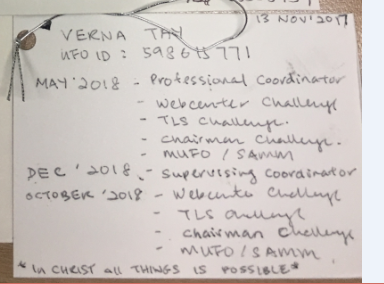 13 NOV'2017
VERNA TAY
UFO ID : 598615771
MAY'2018 - Professional Coordinator
- Webcenter Challenge
- TLS Challenge.
- Chairman Challenge.
- MUFO / SAMM
DEC '2018 - Supervising Coordinator
OCTOBER '2018 - Webcente Challenge
- TLS Challenge
- Chairman Challenge
- MUFO / SAMM
*In CHRIST all THINGS IS POSSIBLE*